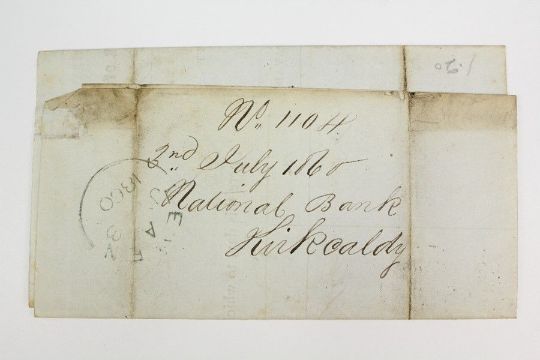 No. 1104.
2nd July 1860
National Bank
Kirkcaldy
1.20
1860